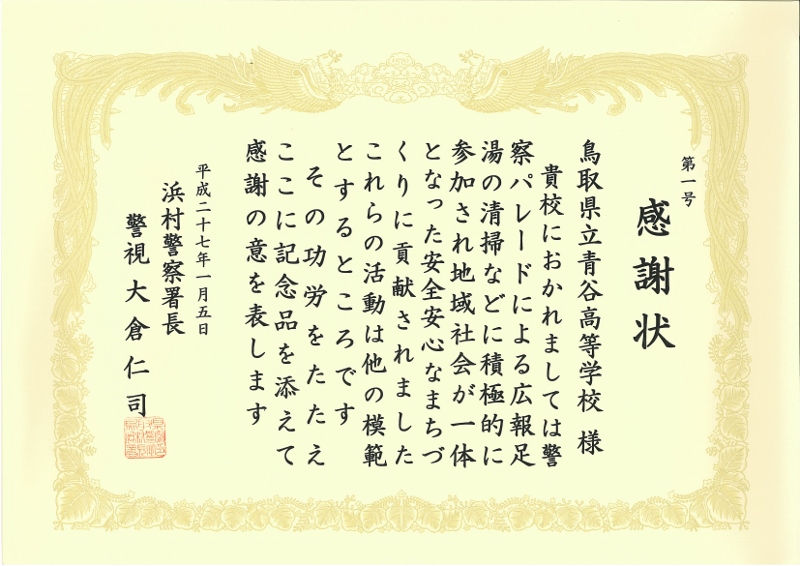 第一号
感謝状
鳥取県立青谷高等学校 様
貴校におかれましては警
察パレードによる広報足
湯の清掃などに積極的に
参加され地域社会が一体
となった安全安心なまちづ
くりに貢献されました
これらの活動は他の模範
とするところです
その功労をたたえ
ここに記念品を添えて
感謝の意を表します
平成二十七年一月五日
浜村警察署長
警視 大倉仁司